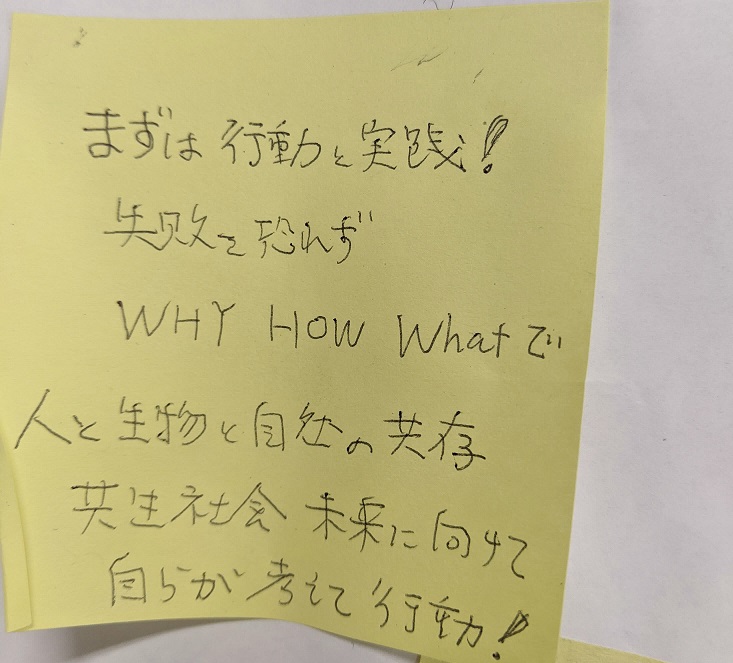 まずは行動と実践！
失敗を恐れず
WHY HOW Whatで
人と生物と自然の共存
共生社会 未来に向けて
自らが考えて行動！